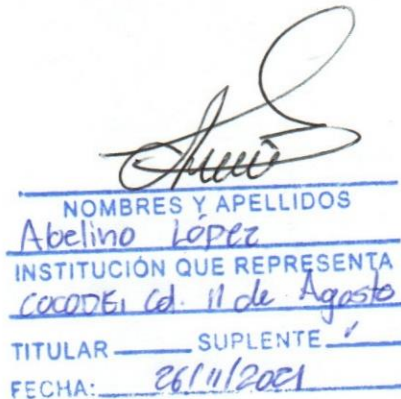 NOMBRES Y APELLIDOS
Abelino López
INSTITUCIÓN QUE REPRESENTA
COCODE, Cd. 11 de Agosto
TITULAR SUPLENTE
FECHA: 26/11/2021